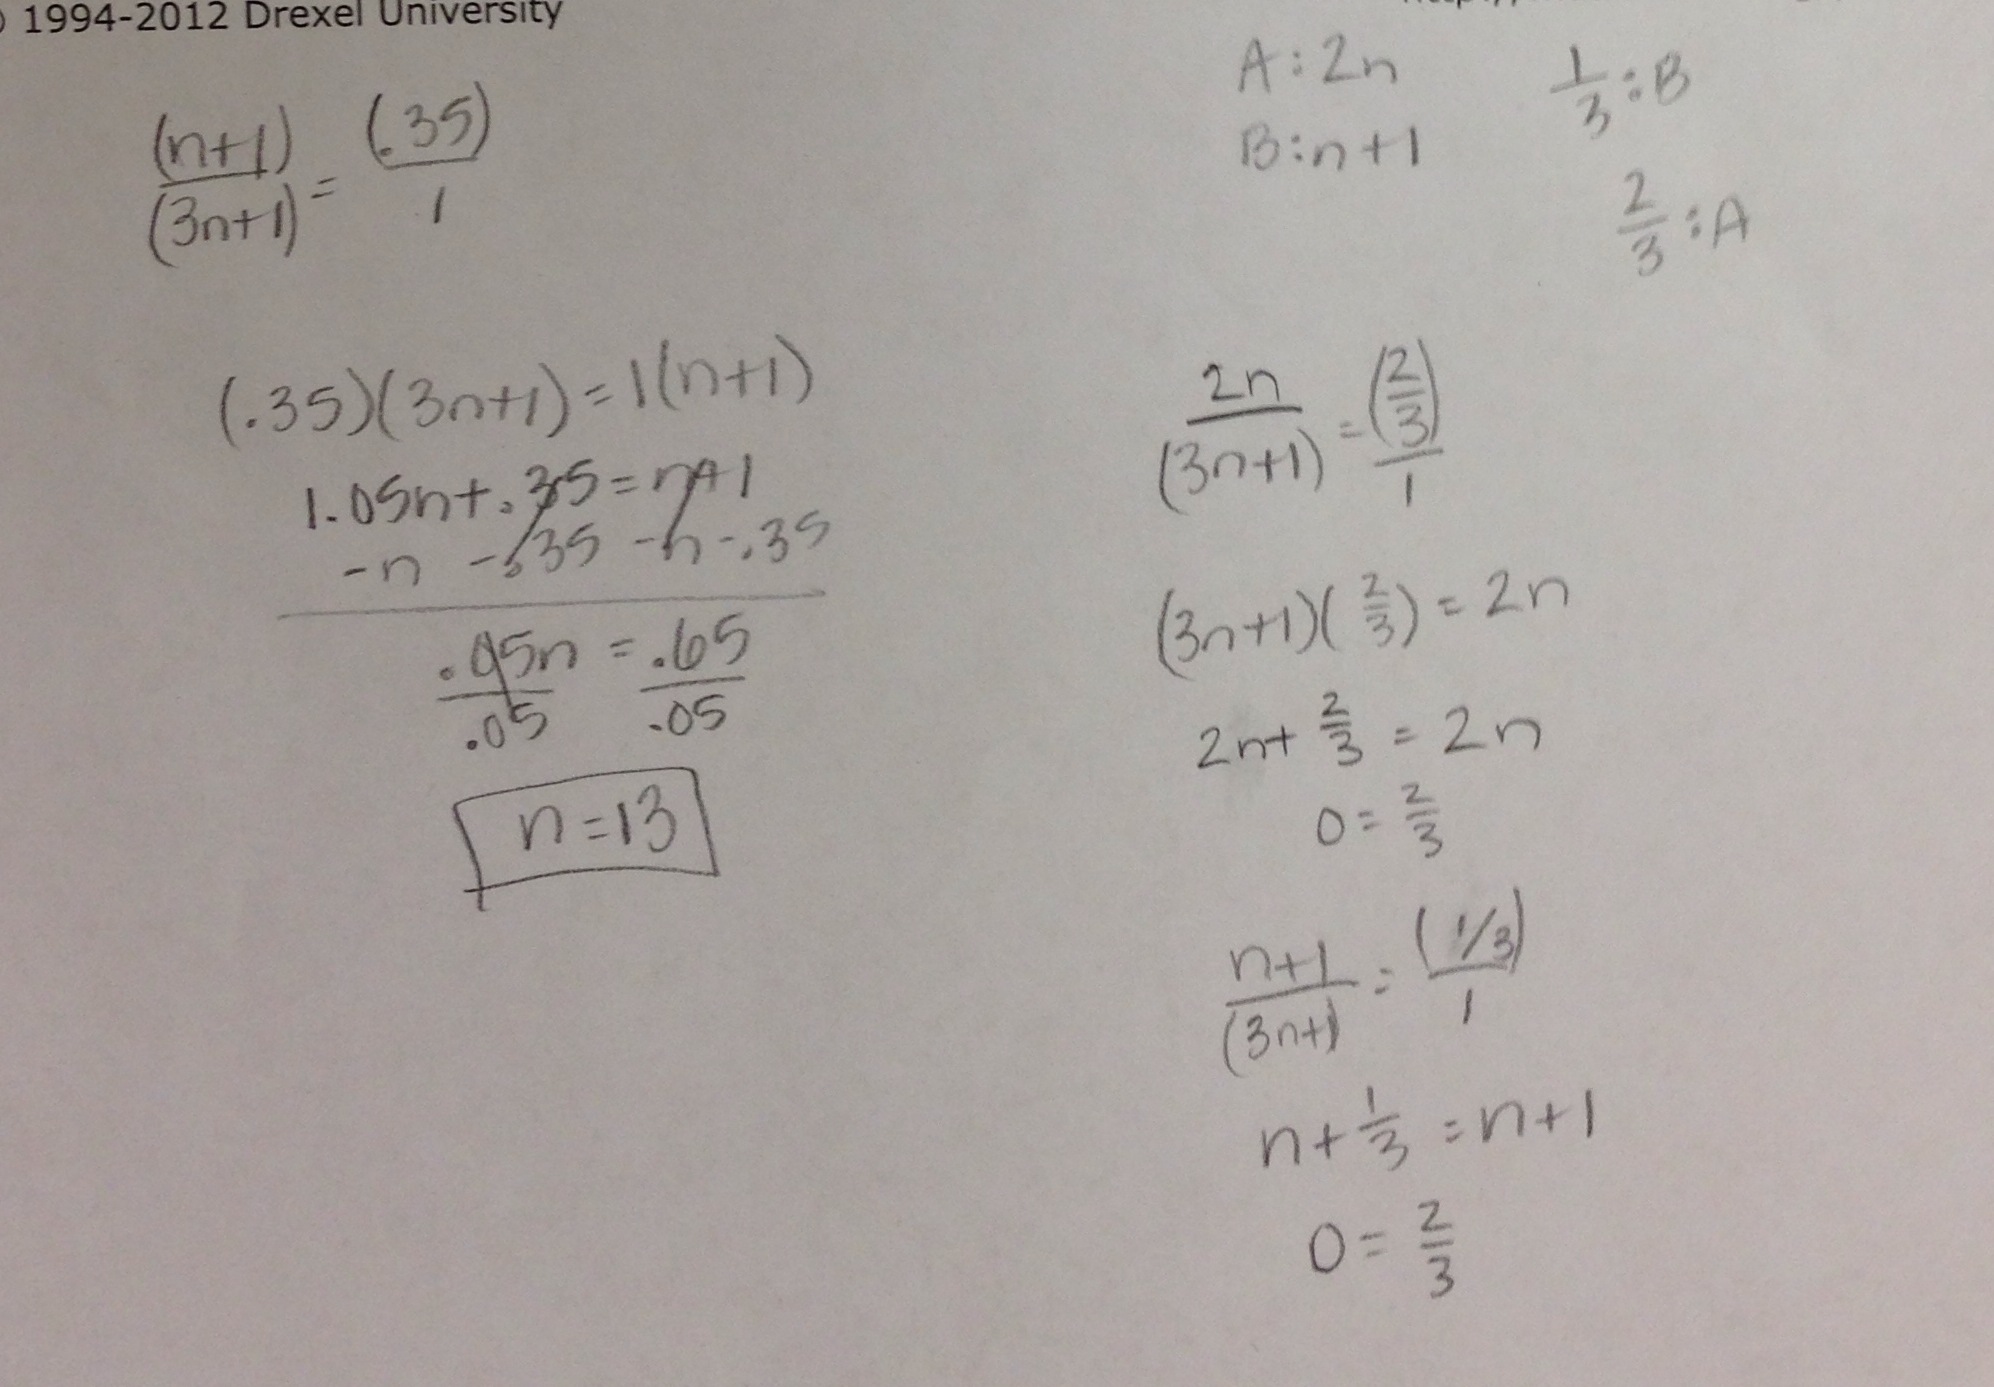 © 1994-2012 Drexel University
(n+1)/(3n+1) = (.35)/1
(.35)(3n+1)=1(n+1)
1.05n+.35=n+1
-n -.35 -n-.35
.05n = .65
.05 .05
n=13
A:2n
B:n+1
1/3:B
2/3:A
2n/(3n+1) = (2/3)/1
(3n+1)(2/3)=2n
2n+2/3=2n
0=2/3
n+1/(3n+1) = (1/3)/1
n+1/3=n+1
0=2/3